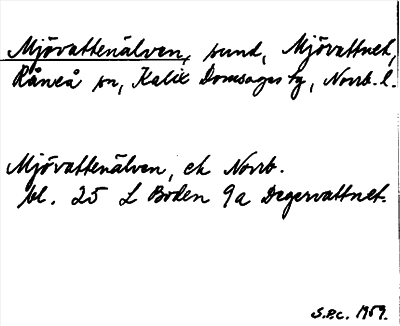 Mjövattenälven, sund, Mjövattnet,
Råneå sn, Kalix Domsagas tg, Norrb. l.
Mjövattenälven, ek Norrb.
bl. 25 L Boden 9a Degervattnet.
S.P.c. 1959.